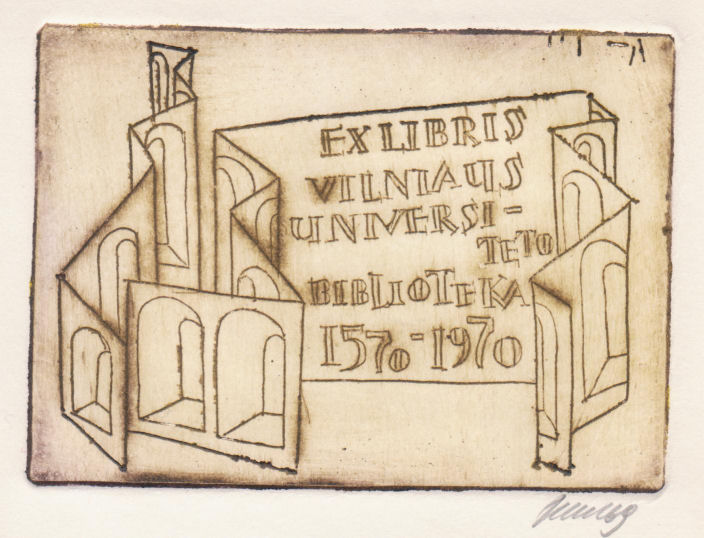 EX LIBRIS
VILNIAUS
UNIVERSI-
TETO
BIBLIOTEKA
1570-1970